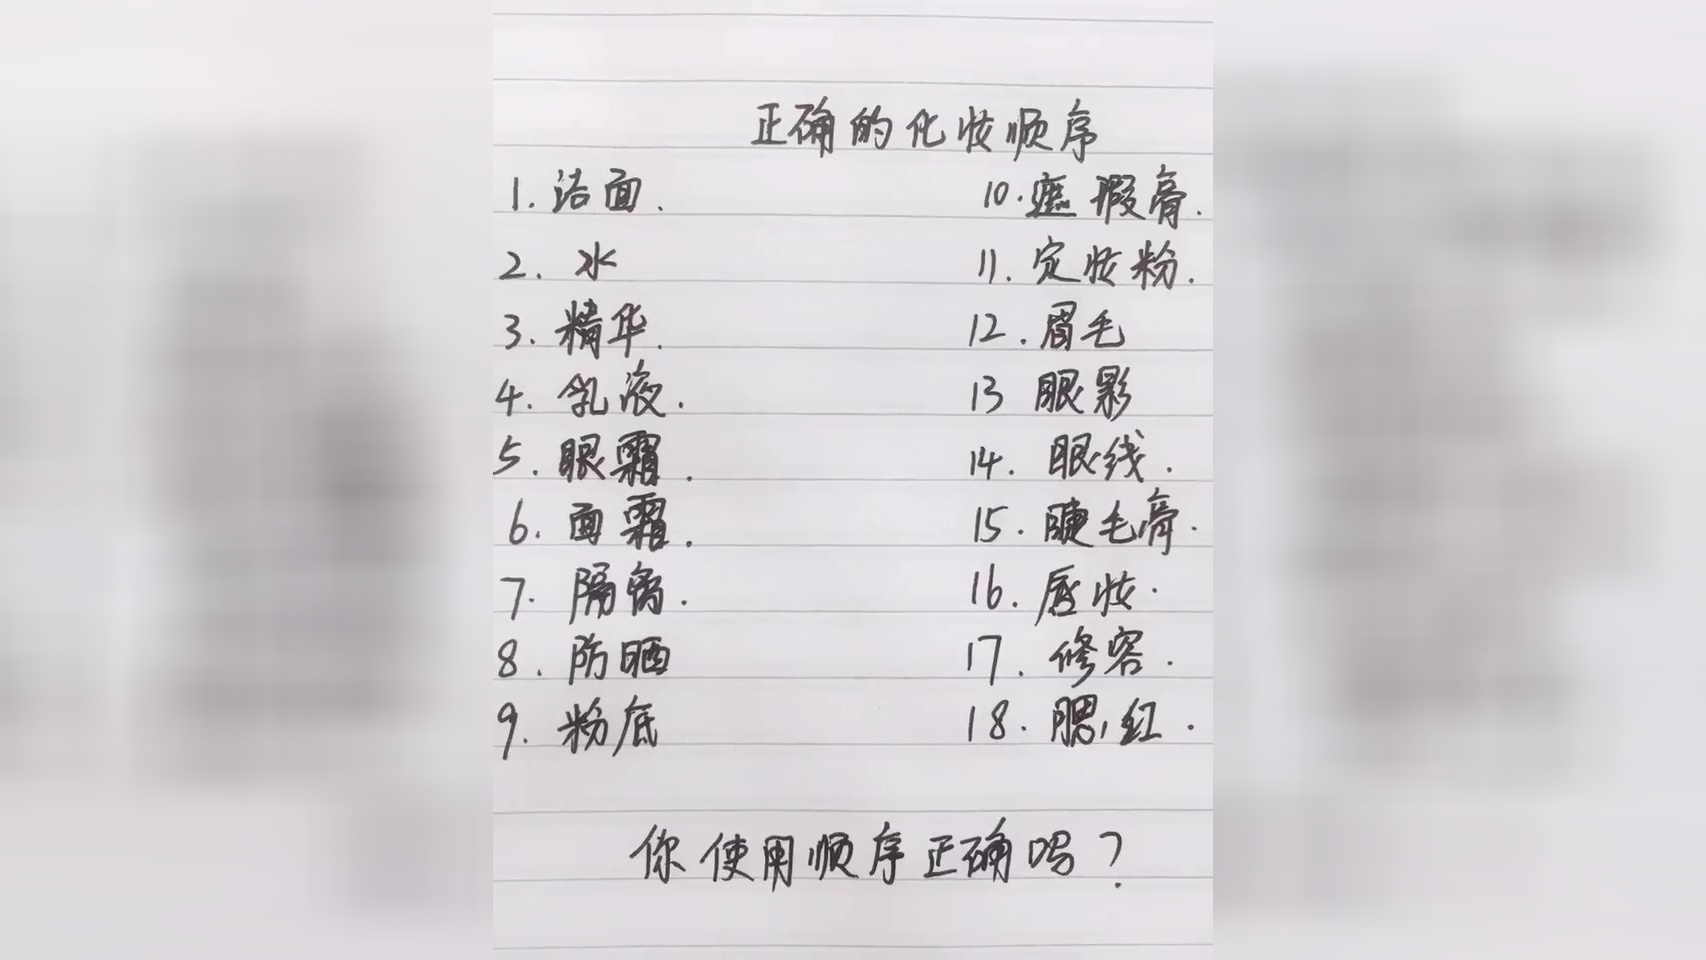 正确的化妆顺序
1. 洁面.
2. 水
3. 精华.
4. 乳液.
5. 眼霜.
6. 面霜.
7. 隔离.
8. 防晒
9. 粉底
10. 遮瑕膏.
11. 定妆粉.
12. 眉毛
13 眼影
14. 眼线.
15. 睫毛膏.
16. 唇妆.
17. 修容.
18. 腮红.
你使用顺序正确吗?